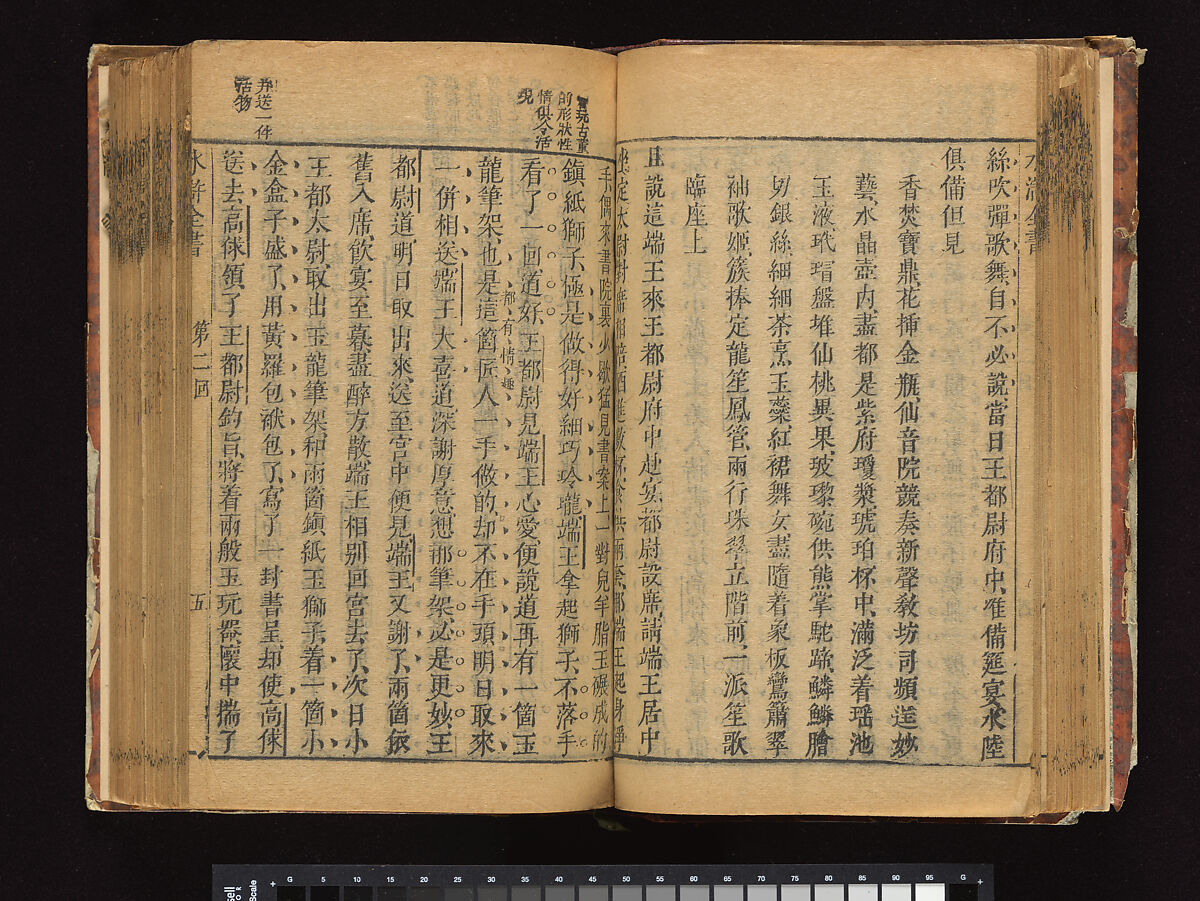 絲吹彈歌舞自不必說當日王都尉府中准備筵宴水陸
俱備但見
香焚寶鼎花揷金瓶仙音院競奏新聲教坊司頻逞妙
藝水晶壺內盡都是紫府瓊漿琥珀杯中滿泛着瑶池
玉液玳瑁盤堆仙桃異果玻璨碗供熊掌駝蹄鱗鱗膾
切銀絲細細茶烹玉蘂紅裙舞女盡隨着象板鸞簫翠
袖歌姬簇捧定龍笙鳳管兩行珠翠立階前一派笙歌
臨座上
且說這端王來王都尉府中赴宴都尉設席請端王居中
坐定太尉對席相陪酒進數杯食供兩套那端王起身淨
手偶來書院裏少歇猛見書案上一對兒羊脂玉碾成的
鎭紙獅子極是做得好細巧玲瓏端王拿起獅子不落手
看了一回道好王都尉見端王心愛便說道再有一箇玉
龍筆架也是這箇匠人一手做的却不在手頭明日取來
一併相送端王大喜道深謝厚意想那筆架必是更妙王
都尉道明日取出來送至宮中便見端王又謝了兩箇依
舊入席飲宴至暮盡醉方散端王相別回宮去了次日小
王都太尉取出玉龍筆架和兩箇鎭紙玉獅子着一箇小
金盒子盛了用黃羅包袱包了寫了一封書呈却使高俅
送去高俅領了王都尉鈞旨將着兩般玉玩器懷中揣了
賞玩古董
的形狀性
情俱令活
現
都有情趣
弄送一件
活物
水滸全書
第二回
五